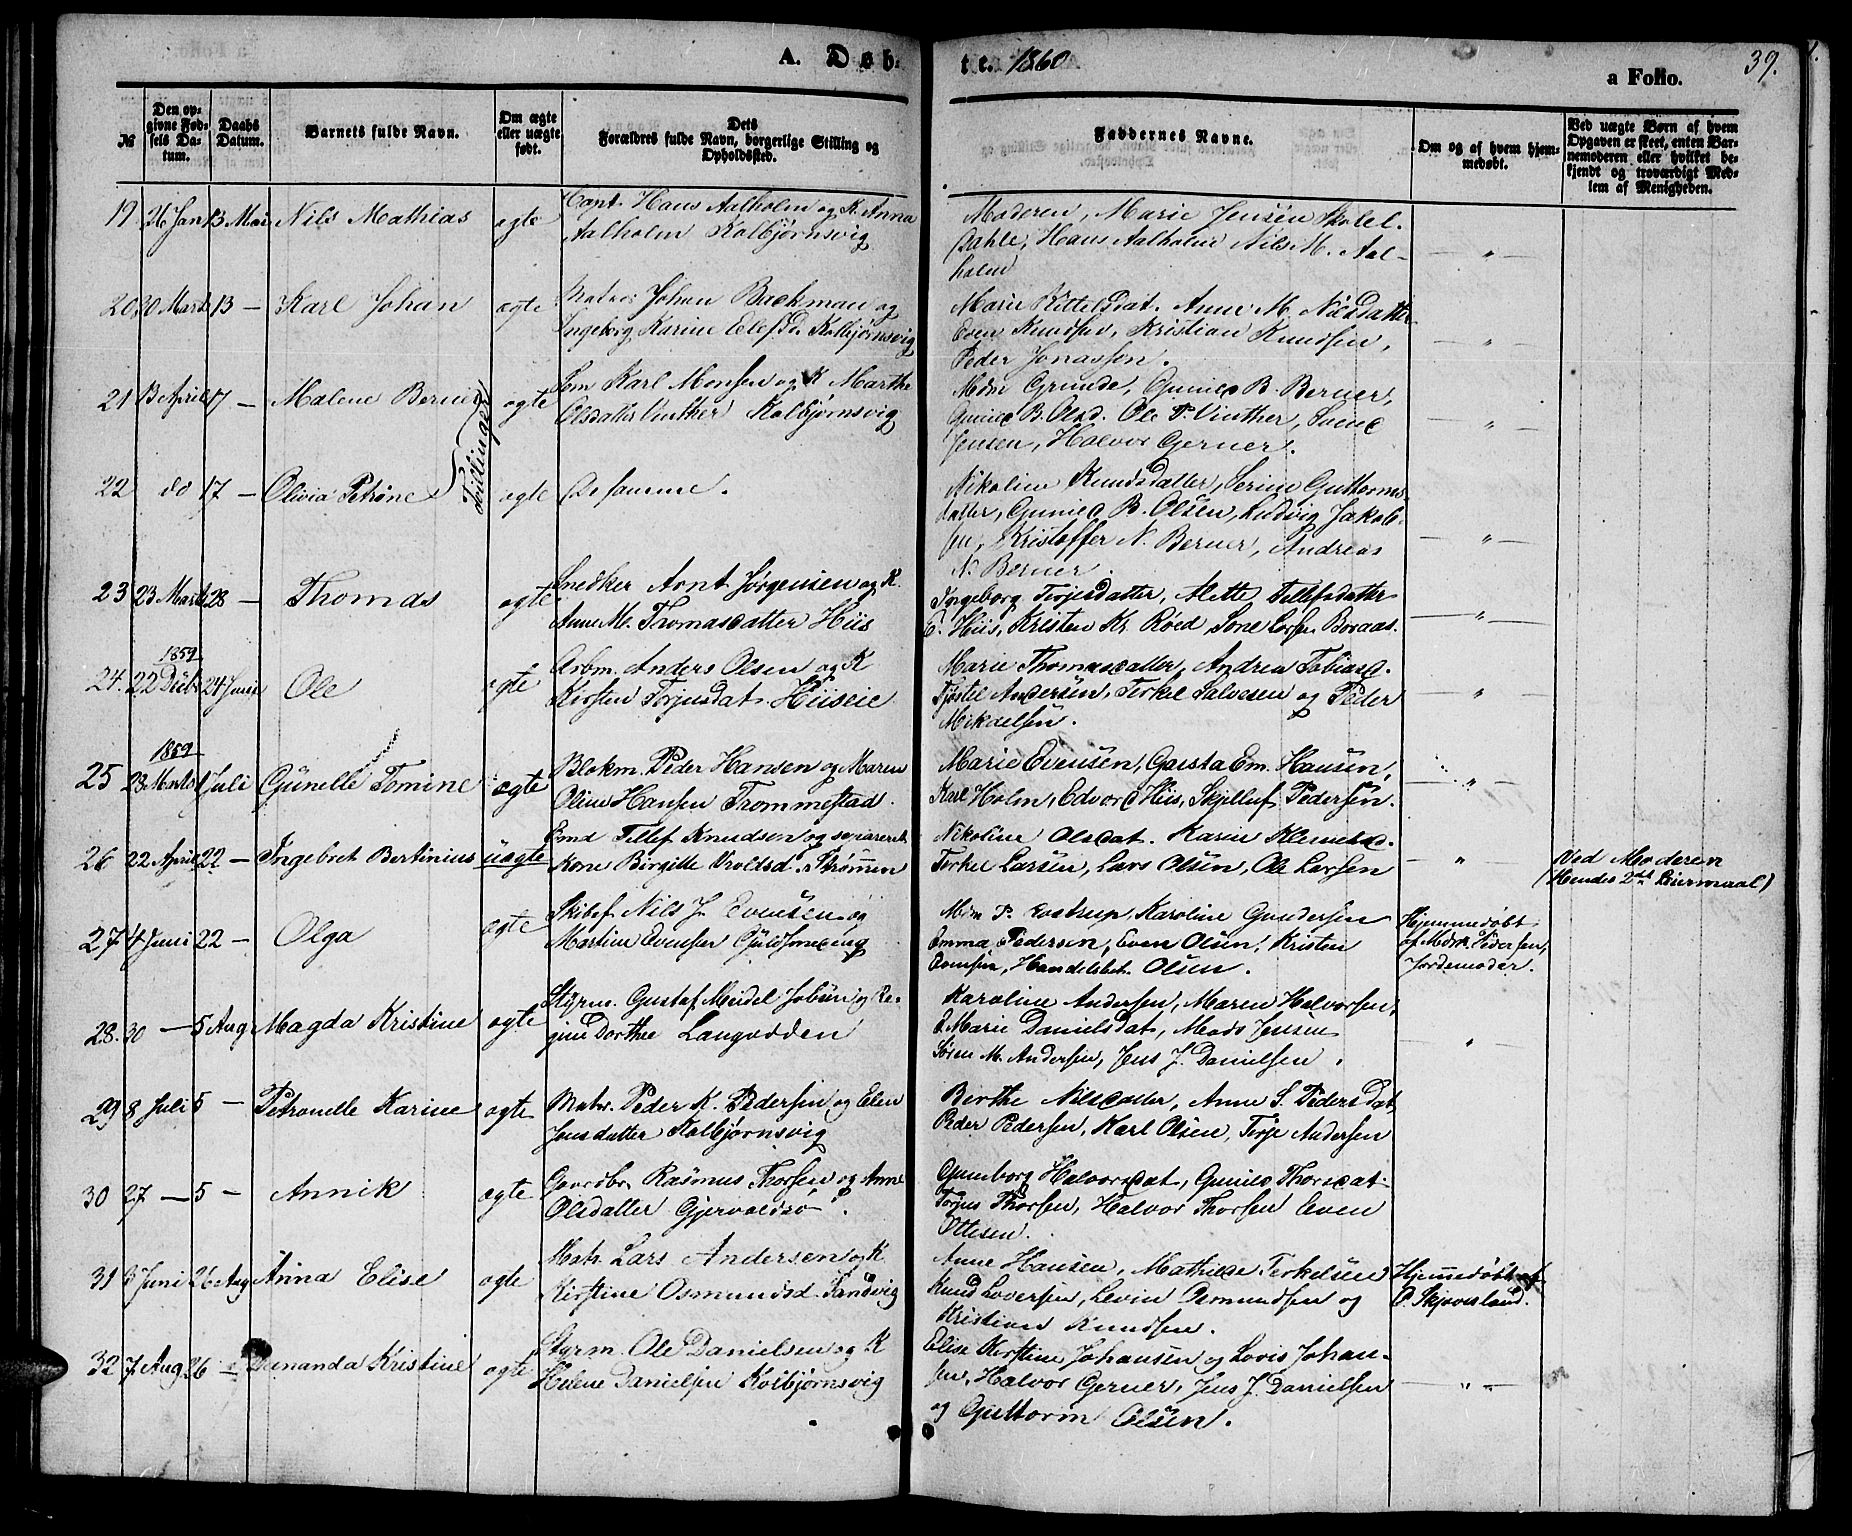 A. Døb-
te. 1860
39.
a Folio.
№
Den op-
givne Fød-
sels Da-
tum.
Daabs
Datum.
Barnets fulde Navn.
Om ægte
eller uægte
født.
Dets
Forældres fulde Navn, borgerlige Stilling og
Opholdssted.
Faddernes Navne.
Om og af hvem hjem-
medøbt.
Ved uægte Børn af hvem
Opgaven er skeet, enten Bar-
nemoderen eller hvilket be-
kjendt og troværdigt Med-
lem af Menigheden.
19. 26 Jan 13 Mai Nils Mathias ægte
Capt. Hans Aalholm og K. Anna
Aalholm Kolbjørnsvig
Moderen, Marie Jensen Skolel.
Dahle, Hans Aalholm Nils M. Aal-
holm
20 30 Marts 13 — Karl Johan ægte
Matros Johan Backman og
Ingeborg Karine Elefsd. Kolbjørnsvig
Marie Kittelsdat. Anne M. Nilsdatter
Even Knudsen, Kristian Knudsen,
Peder Jonassen.
21 13 April 17 — Malene Bernie ægte
Tvillinger
Tom Karl Monsen og K Marthe
Olsdatter Vinther Kolbjørnsvig
Mdm Grunde, Gunild B. Berner,
Gunild B. Olsd. Ole P. Vinther,
Jensen, Halvor Gerner.
22 do 17 — Olivia Petrine ægte
De samme.
Nikoline Knudsdatter, Serine Guttorms-
datter, Gunild B. Olsen, Ludvig Jakob-
sen, Kristoffer N. Berner, Andreas
N. Berner.
23 23 Marts 28 — Thomas ægte
Snedker Arnt Jørgensen og K.
Anne M. Thomasdatter Hiis
Ingeborg Terjesdatter, Mette Tellefsdatter
E. Hiis, Kristen Kr. Røed Sone Larsen Boraas.
24. 1859
22 Debr 24 Juni Ole ægte
Arbm. Anders Olsen og K
Kirsten Torjusdat. Hiiseie
Marie Thomasdatter, Andrea Tobiasd.
Kjøstel Andersen, Terkel Salvesen og Peder
Mikaelsen.
25 1859
23 Marts 1 Juli Gunelle Tomine ægte
Blokm. Peder Hansen og Maren
Oline Hansen Trommestad.
Marie Evensen, Gusta Em. Hansen,
Karl Holm, Edvard Hiis, Skjelluf Pedersen.
26 22 April 22 — Ingebret Bertinius uægte
Tellef Knudsen og separeret
Kone Birgitte Vroldsd. Strømmen
Nikoline Olsdat. Karen Klemetsd.
Terkel Larsen, Lars Olsen, Ole Larsen
Ved Moderen
(Hendes 2det Leiermaal)
27 4 Juni 22 — Olga ægte
Skibsf. Nils J. Evensen og
Martine Evensen Guldsmedeng
Mdm P. Aastrup, Karoline Gundersen
Emma Pedersen, Even Olsen, Kristen
Evensen, Handelsbet. Olsen.
Hjemmedøbt
af Mdm Pedersen,
Jordemoder.
28. 30 — 5 Aug Magda Kristine ægte
Styrm. Gustaf Meidel Jobsen og Re-
gine Dorthe Langodden
Karoline Andersen, Maren Halvorsen,
E. Marie Danielsdat, Mads Jensen
Søren M. Andersen, Jens J. Danielsen.
29 8 Juli 5 — Petronelle Karine ægte
Matr. Peder K. Pedersen og Elen
Jensdatter Kolbjørnsvig
Berthe Nilsdatter, Anne S. Pedersdat,
Peder Pedersen, Karl Olsen, Terje Andersen
30 27 — 5 — Annik ægte
Gaardbr. Rasmus Thorsen og Anne
Olsdatter Gjervoldsø.
Gunborg Halvorsdat, Gunild Thorsdat.
Torjus Thorsen, Halvor Thorsen Even
Ottesen.
31 3 Juni 26 Aug Anna Elise ægte
Matr. Lars Andersen og K
Kirstine Osmundsd. Sandvig
Anne Hansen, Mathilde Terkelsen
Knud Loversen, Levin Osmundsen og
Kristian Knudsen.
Hjemmedøbt af
P. Skjeverland.
32 7 Aug 26 — Dunanda Kristine ægte
Styrm. Ole Danielsen og K
Helene Danielsen Kolbjørnsvig
Elise Kirstine Johansen og Lovis Johan-
sen, Halvor Gerner, Jens J. Danielsen
og Guttorm Olsen.